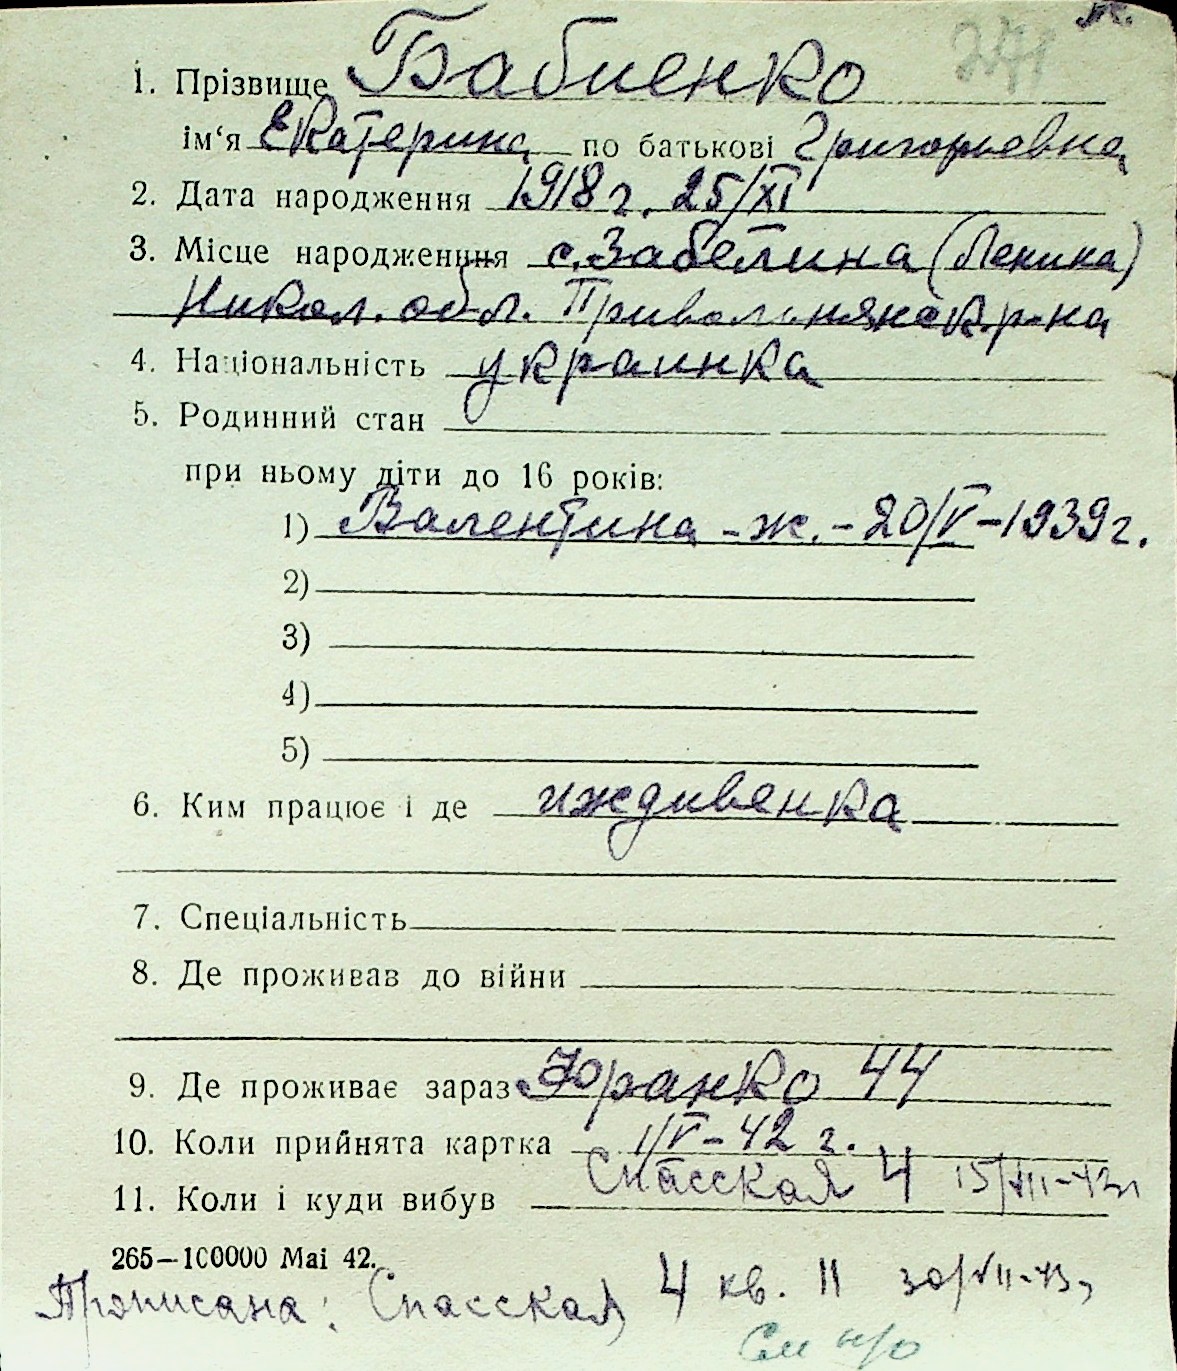 ж.
271
1. Прізвище Бабиенко
ім‘я Екатерина по батькові Григорьевна
2. Дата народження 1918 г. 25/XI
3. Місце народженння с. Забелина (Ленина)
Никол. обл. р-на
4. Національність украинка
5. Родинний стан
при ньому діти до 16 років:
1) Валентина - ж. - 20/V - 1939 г.
2)
3)
4)
5)
6. Ким працює і де иждивенка
7. Спеціальність
8. Де проживав до війни
9. Де проживає зараз Франко 44
10. Коли прийнята картка 1/V - 42 г.
11. Коли і куди вибув Спасская 4 15/VII-43г
265—100000 Mai 42.
Прописана: Спасская 4 кв. 11 30/VII-43г
См н/о